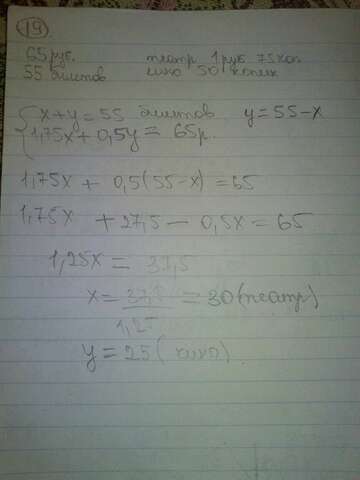 19
65 руб.    театр 1 руб 75 коп
55 билетов    кино 50 копеек
x+y=55 билетов    y=55-x
1,75x + 0,5y = 65р.
1,75x + 0,5(55-x)=65
1,75x + 27,5 - 0,5x = 65
1,25x = 37,5
x = 37,5/1,25 = 30 (театр)
y = 25 (кино)